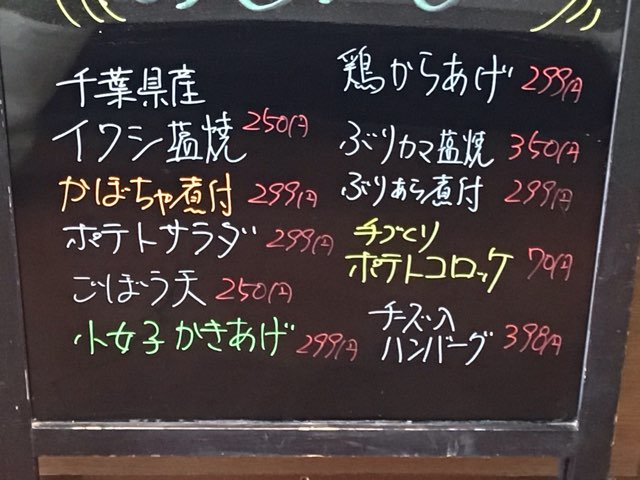 千葉県産
イワシ塩焼 250円
かぼちゃ煮付 299円
ポテトサラダ 299円
ごぼう天 250円
小女子かきあげ 299円
鶏からあげ 299円
ぶりカマ塩焼 350円
ぶりあら煮付 299円
手づくり
ポテトコロッケ 70円
チーズ入
ハンバーグ 398円